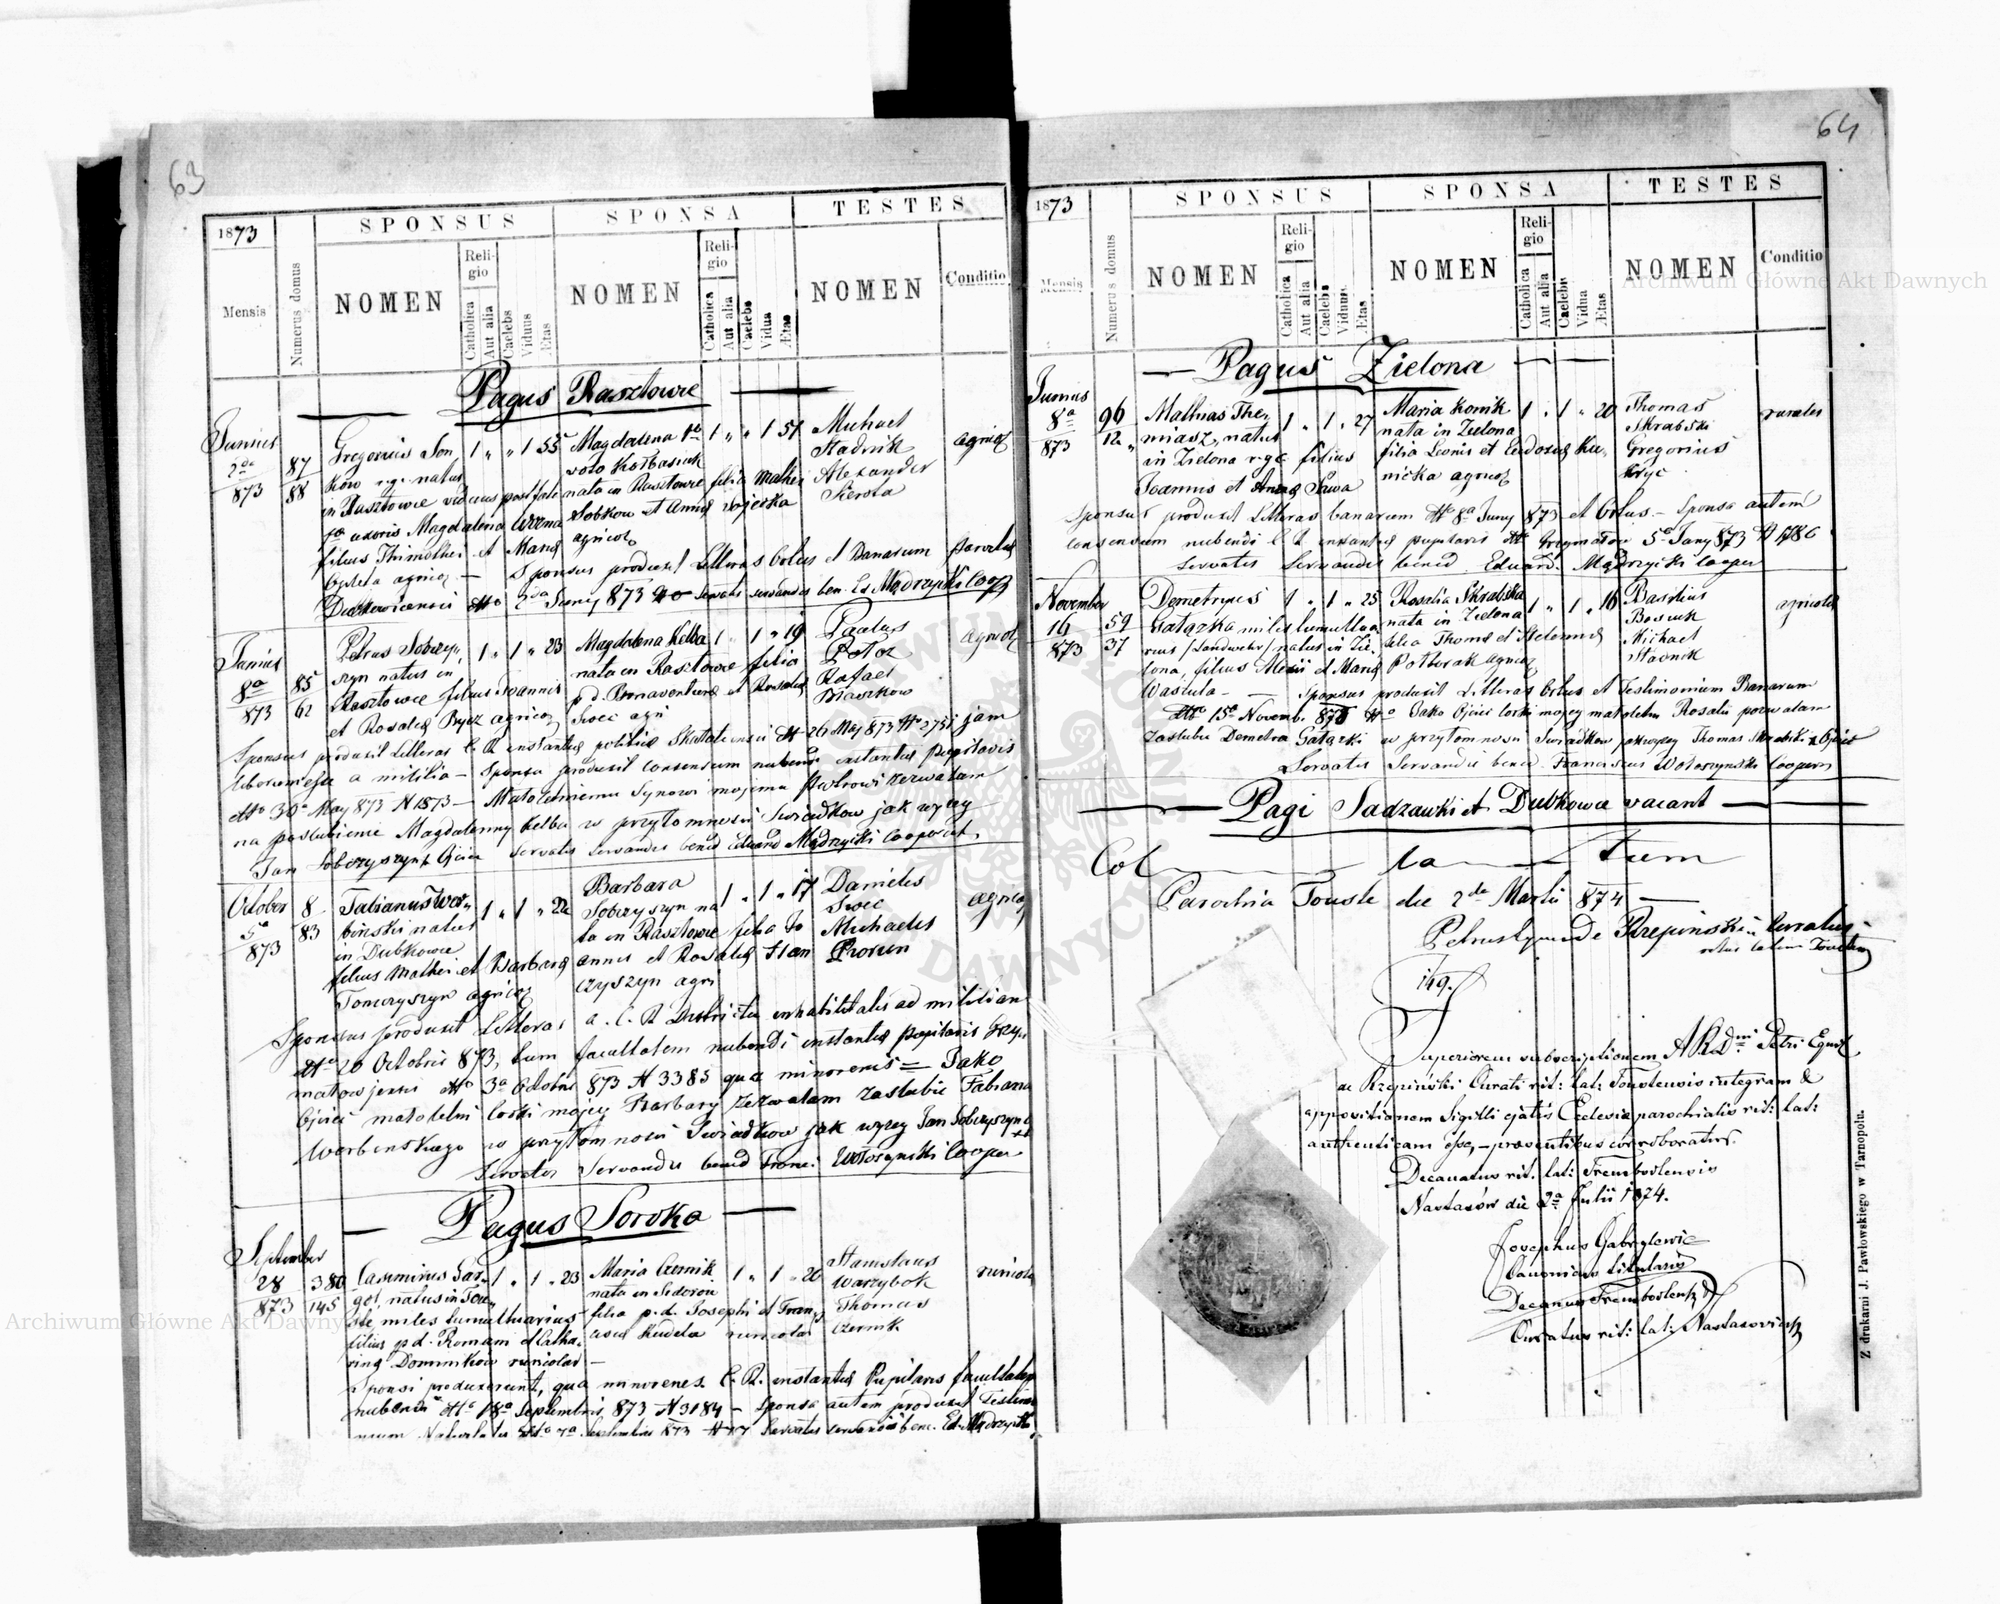 63
1873
SPONSUS
SPONSA
TESTES
Mensis
Numerus domus
NOMEN
Religio
Catholica
Aut alia
Caelebs
Viduus
Ætas
NOMEN
Religio
Catholica
Aut alia
Caelebs
Vidua
Ætas
NOMEN
Conditio
Pagus Rasztowce
Junius
2da
873
87
88
Gregorius
natus
in Rasztowce viduus post fata
uxoris Magdalena
filius Thimothei et Mariæ
1 " " 1 55
Magdalena
voto
nata in Rasztowce filia Mathei
Sobkow et Annæ
agricol
1 " " 1 51
Michael
Stadnik
Alexander
Sierota
agricol
Sponsus produxit Litteras Ortus et Banarum Parochiæ
dtto 2da Juny 873 Servatis servandis ben. Ed. Mądrzycki Coop
Junius
8a
873
85
62
Petrus Sobczy
szyn natus in
Rasztowce filius Joannis
et Rosaliæ agricol
1 " 1 " 23
Magdalena Kelba
nata in Rasztowce filia
p. d. Bonaventuræ et Rosaliæ
Swec agri
1 " 1 " 19
Paulus
Potoz
Rafael
Daszkow
agricol
Sponsus produxit Litteras C. R. instantiæ politicæ Skalatensis dtto 26 May 873 jam
a militia – Sponsa produxit consensum nubendi instantiæ Pupilaris
dtto 30a May 873 N 1873 – Małoletniemu Synowi mojemu Piotrowi zezwalam
na poslubienie Magdalenny Kelba w przytomnosci Swiadkow jak wyzey
Jan Sobczyszyn + Ojciec Servatis servandis bened Eduard Mądrzycki Cooperat.
October
5a
873
8
83
Fabianus Wer
binski natus
in Dubkowce
filius Mathei et Barbaræ
Tomczyszyn agricol
1 " 1 " 22
Barbara
Sobczyszyn na
ta in Rasztowce filia Jo
annis et Rosaliæ
czyszyn agri
1 " 1 " 17
Daniels
Swec
Michaelis
Prorun
agricol
Sponsus produxit Litteras a. C. R. Districtu inhabilitatis ad militiam
dtto 20 Octobris 873, tum facultatem nubendi instantiæ Pupilaris Grzy
matowjensi dtto 3a Octobris 873 N 3385 qua minorenis = Jako
Ojciec małoletni Corki mojey Barbary zezwalam zaslubic Fabiana
Werbinskiego w przytomnosci Swiadkow jak wyzey Jan Sobczyszyn
Servatis Servandis bened Franci Wołoszynski Cooper
Pagus Soroka
September
28
873
380
145
Casimirus Gar
gol, natus in Tou
ste miles tumultuarius
filius p. d. Romani et Catha
rinæ Dominikow ruricolar –
1 " 1 " 23
Maria Czernik
nata in Sidorow
filia p. d. Josephi et Fran
ciscæ Kudela ruricolar
1 " 1 " 20
Stanislaus
Warzybok
Thomas
Czernik
ruricola
Sponsi produxerunt, qua minorenes C. R. instantiæ Pupilaris facultatem
nubendi dtto 18a Septembris 873 N 3184 – Sponsa autem produxit Testimo
nium dtto Septembris 873 Servatis servandis bene. Ed. Mądrzycki
64
1873
SPONSUS
SPONSA
TESTES
Mensis
Numerus domus
NOMEN
Religio
Catholica
Aut alia
Caelebs
Viduus
Ætas
NOMEN
Religio
Catholica
Aut alia
Caelebs
Vidua
Ætas
NOMEN
Conditio
Pagus Zielona
Junius
8a
873
96
12
Mathias
natus
in Zielona r. g. c. filius
Joannis et Annæ Sawa
1 " 1 " 27
Maria Konik
nata in Zielona
filia Leonis et Eudoxiæ Ku
nicka agricol
1 " 1 " 20
Thomas
Skrabski
Gregorius
Kryc
rurales
Sponsus produxit Litteras banarum dtto 8a Juny 873 et Ortus – Sponsa autem
consensum nubendi C. R. instantiæ pupilaris dtto Grzymałow 5a Juny 873 N 1786
Servatis Servandis bened. Eduard. Mądrzycki Cooper
November
16
873
59
37
Demetrius
Gałązka miles tumultua
rius /Landwehr/ natus in Zie
lona, filius et Mariæ
Wastula –
1 " 1 " 25
Rosalia Skrabska
nata in Zielona
filia Thomæ et Helenæ
Połtorak agricol
1 " 1 " 16
Basilius
Bosiuk
Michael
Stadnik
agricola
Sponsus produxit Litteras Ortus et Testimonium Banarum
dtto 15a Novemb. 873 Jako Ojciec Corki mojey małoletni Rosalii pozwalam
zaslubic Demetra Gałązki w przytomnosci Swiadkow Thomas Skrabski + Ojciec
Servatis Servandis bened. Franciscus Wołoszynski Cooper
Pagi Sadzawki et Dubkowce vacant
Col la tum
Parochia Touste die 2da Martii 874
Petrus Eques de Krzepinski Curatus
ritus latini Toustensis
149.
Superiorem subscriptionem A. R. Dni Petri Equit
de Krzepiński Curati rit: lat: Toustensis integram &
appositionem Sigilli ejatis Ecclesiæ parochialis rit: lat:
authenticam esse, – præsentibus corroboratur.
Decanatus rit. lat: Trembovlensis
Nastasów die 2a Julii 1874.
Josephus Gabryłowic
Canonicus titularis
Decanus Trembovlensis
Curatus rit: lat: Nastasoviensis
Z drukarni J. Pawłowskiego w Tarnopolu.
Archiwum Główne Akt Dawnych
Archiwum Główne Akt Dawnych